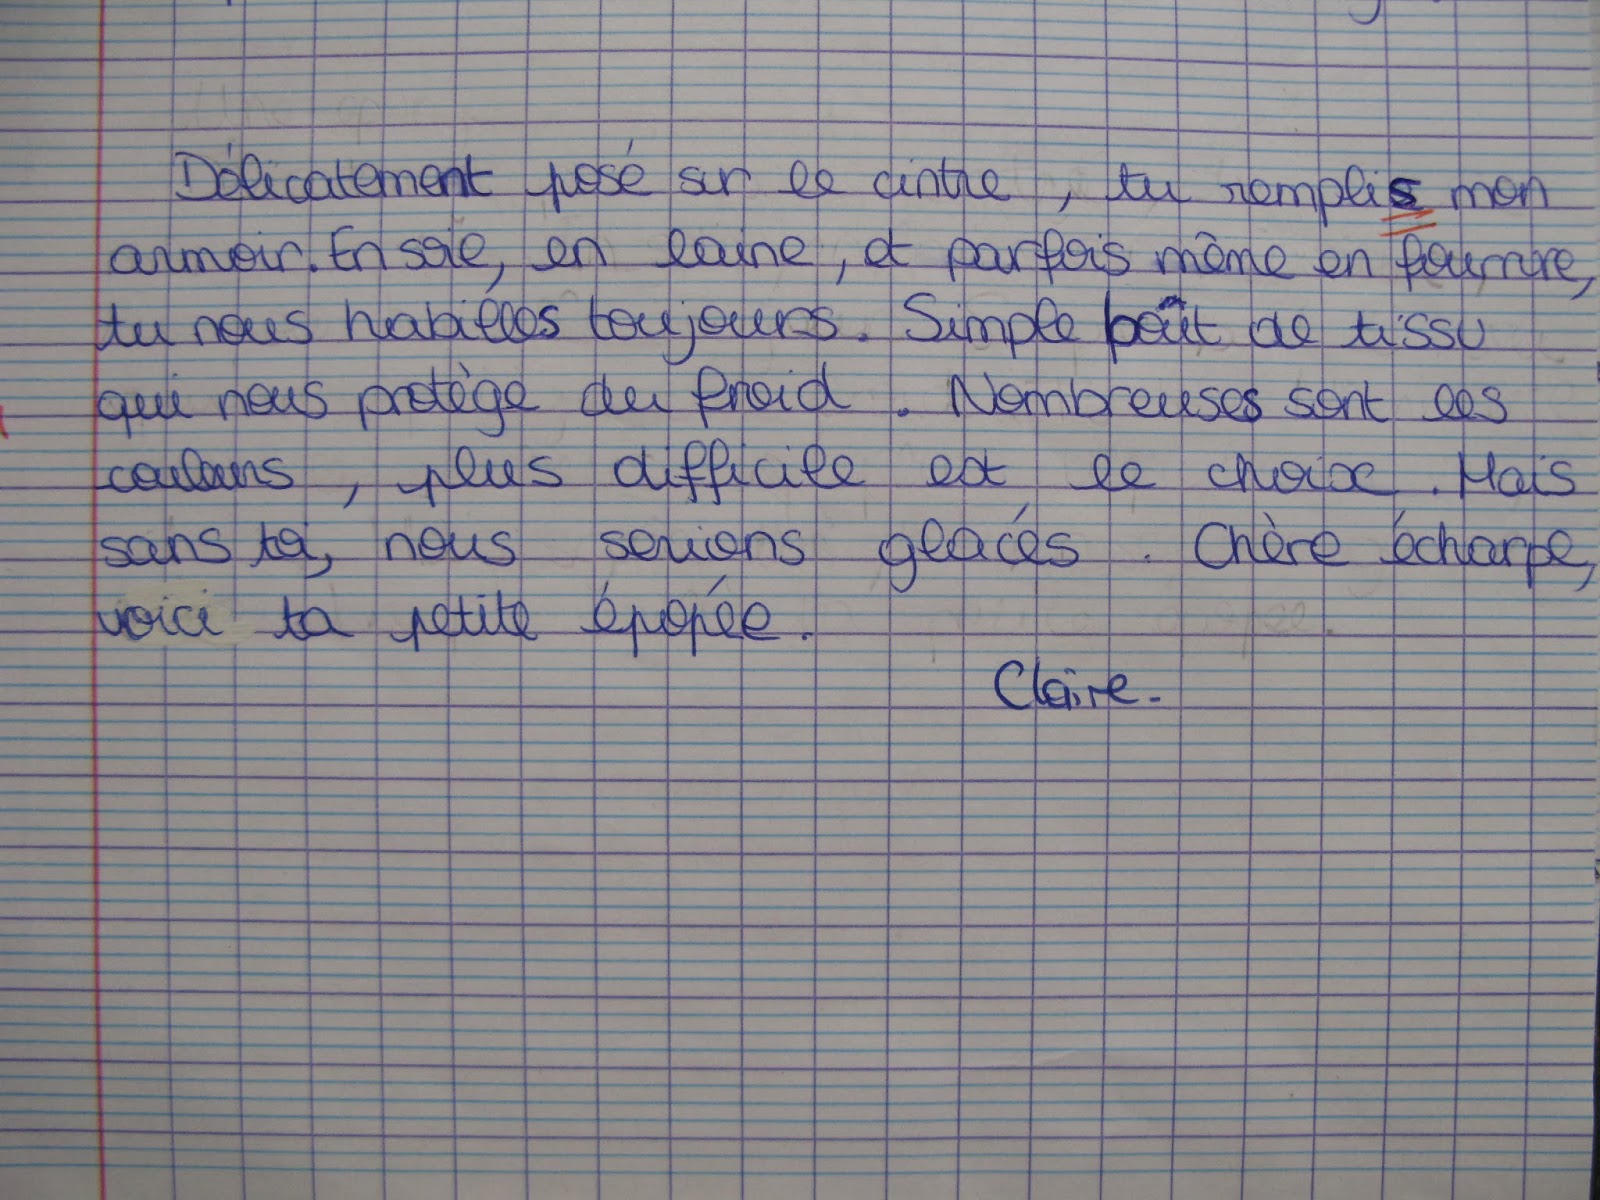 Délicatement posé sur le cintre, tu remplis mon
armoir. En soie, en laine, et parfois même en fourrure,
tu nous habilles toujours. Simple boût de tissu
qui nous protège du froid. Nombreuses sont les
couleurs, plus difficile est le choix. Mais
sans toi, nous serions glacés. Chère écharpe,
voici ta petite épopée.
Claire.